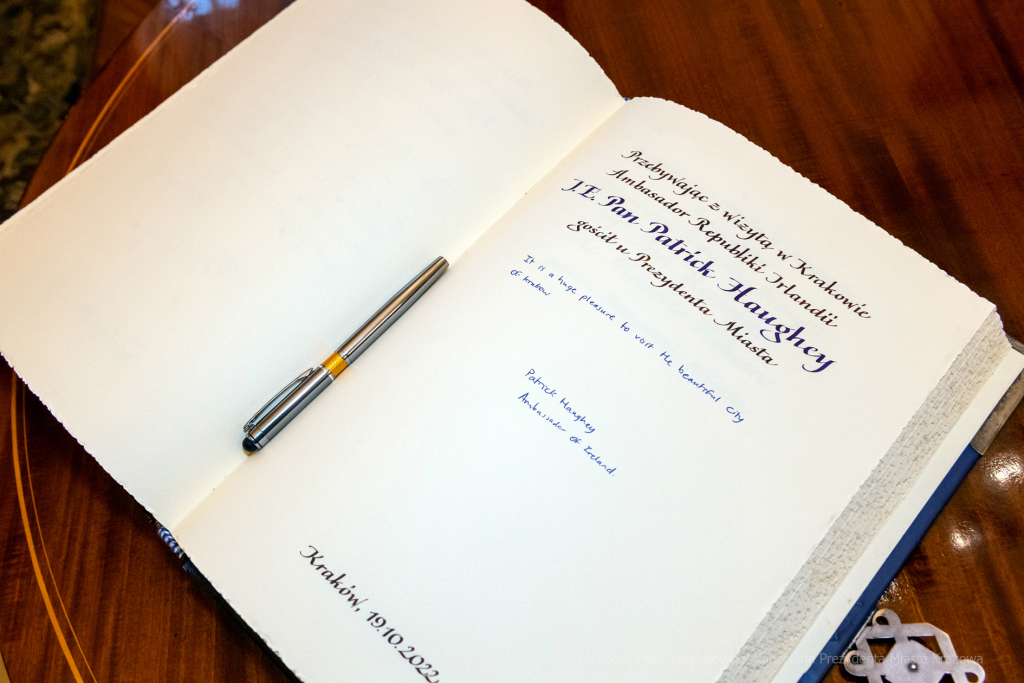 Przebywając z wizytą w Krakowie
Ambasador Republiki Irlandii
J.E. Pan Patrick Haughey
gościł u Prezydenta Miasta
It is a huge pleasure to visit the beautiful city
of Krakow
Patrick Haughey
Ambassador of Ireland.
Kraków, 19.10.2022
Prezydenta Miasta Krakowa